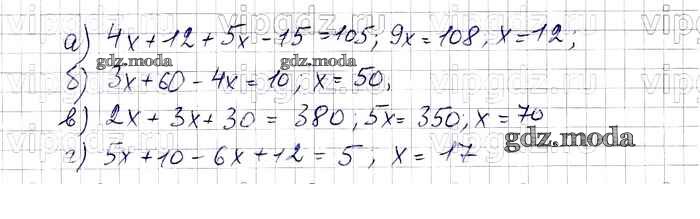 а) 4x+12+5x-15=105; 9x=108, x=12;
б) 3x+60-4x=10, x=50,
в) 2x+3x+30=380; 5x=350, x=70
г) 5x+10-6x+12=5; x=17
gdz.moda
gdz.moda
gdz.moda